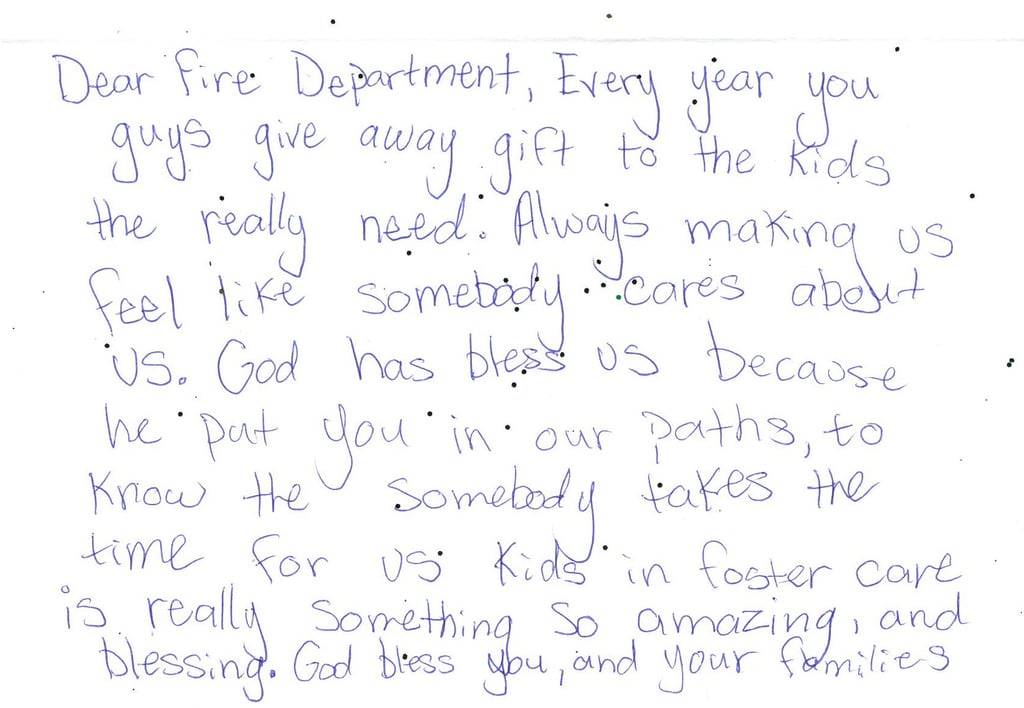 Dear fire Department, Every year you
guys give away gift to the kids
the really need. Always making us
feel like somebody cares about
us. God has bless us because
he put you in our paths, to
know the somebody takes the
time for us kids in foster care
is really something so amazing, and
blessing. God bless you, and your families